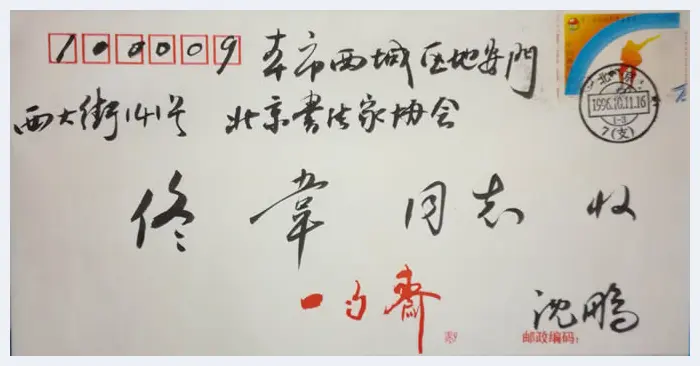 100009 本市西城区地安門
西大街141号 北京書法家协会
佟韋 同志 收
一勺齋
沈鹏
邮政编码：
北
1996.10.11.16
7(支)